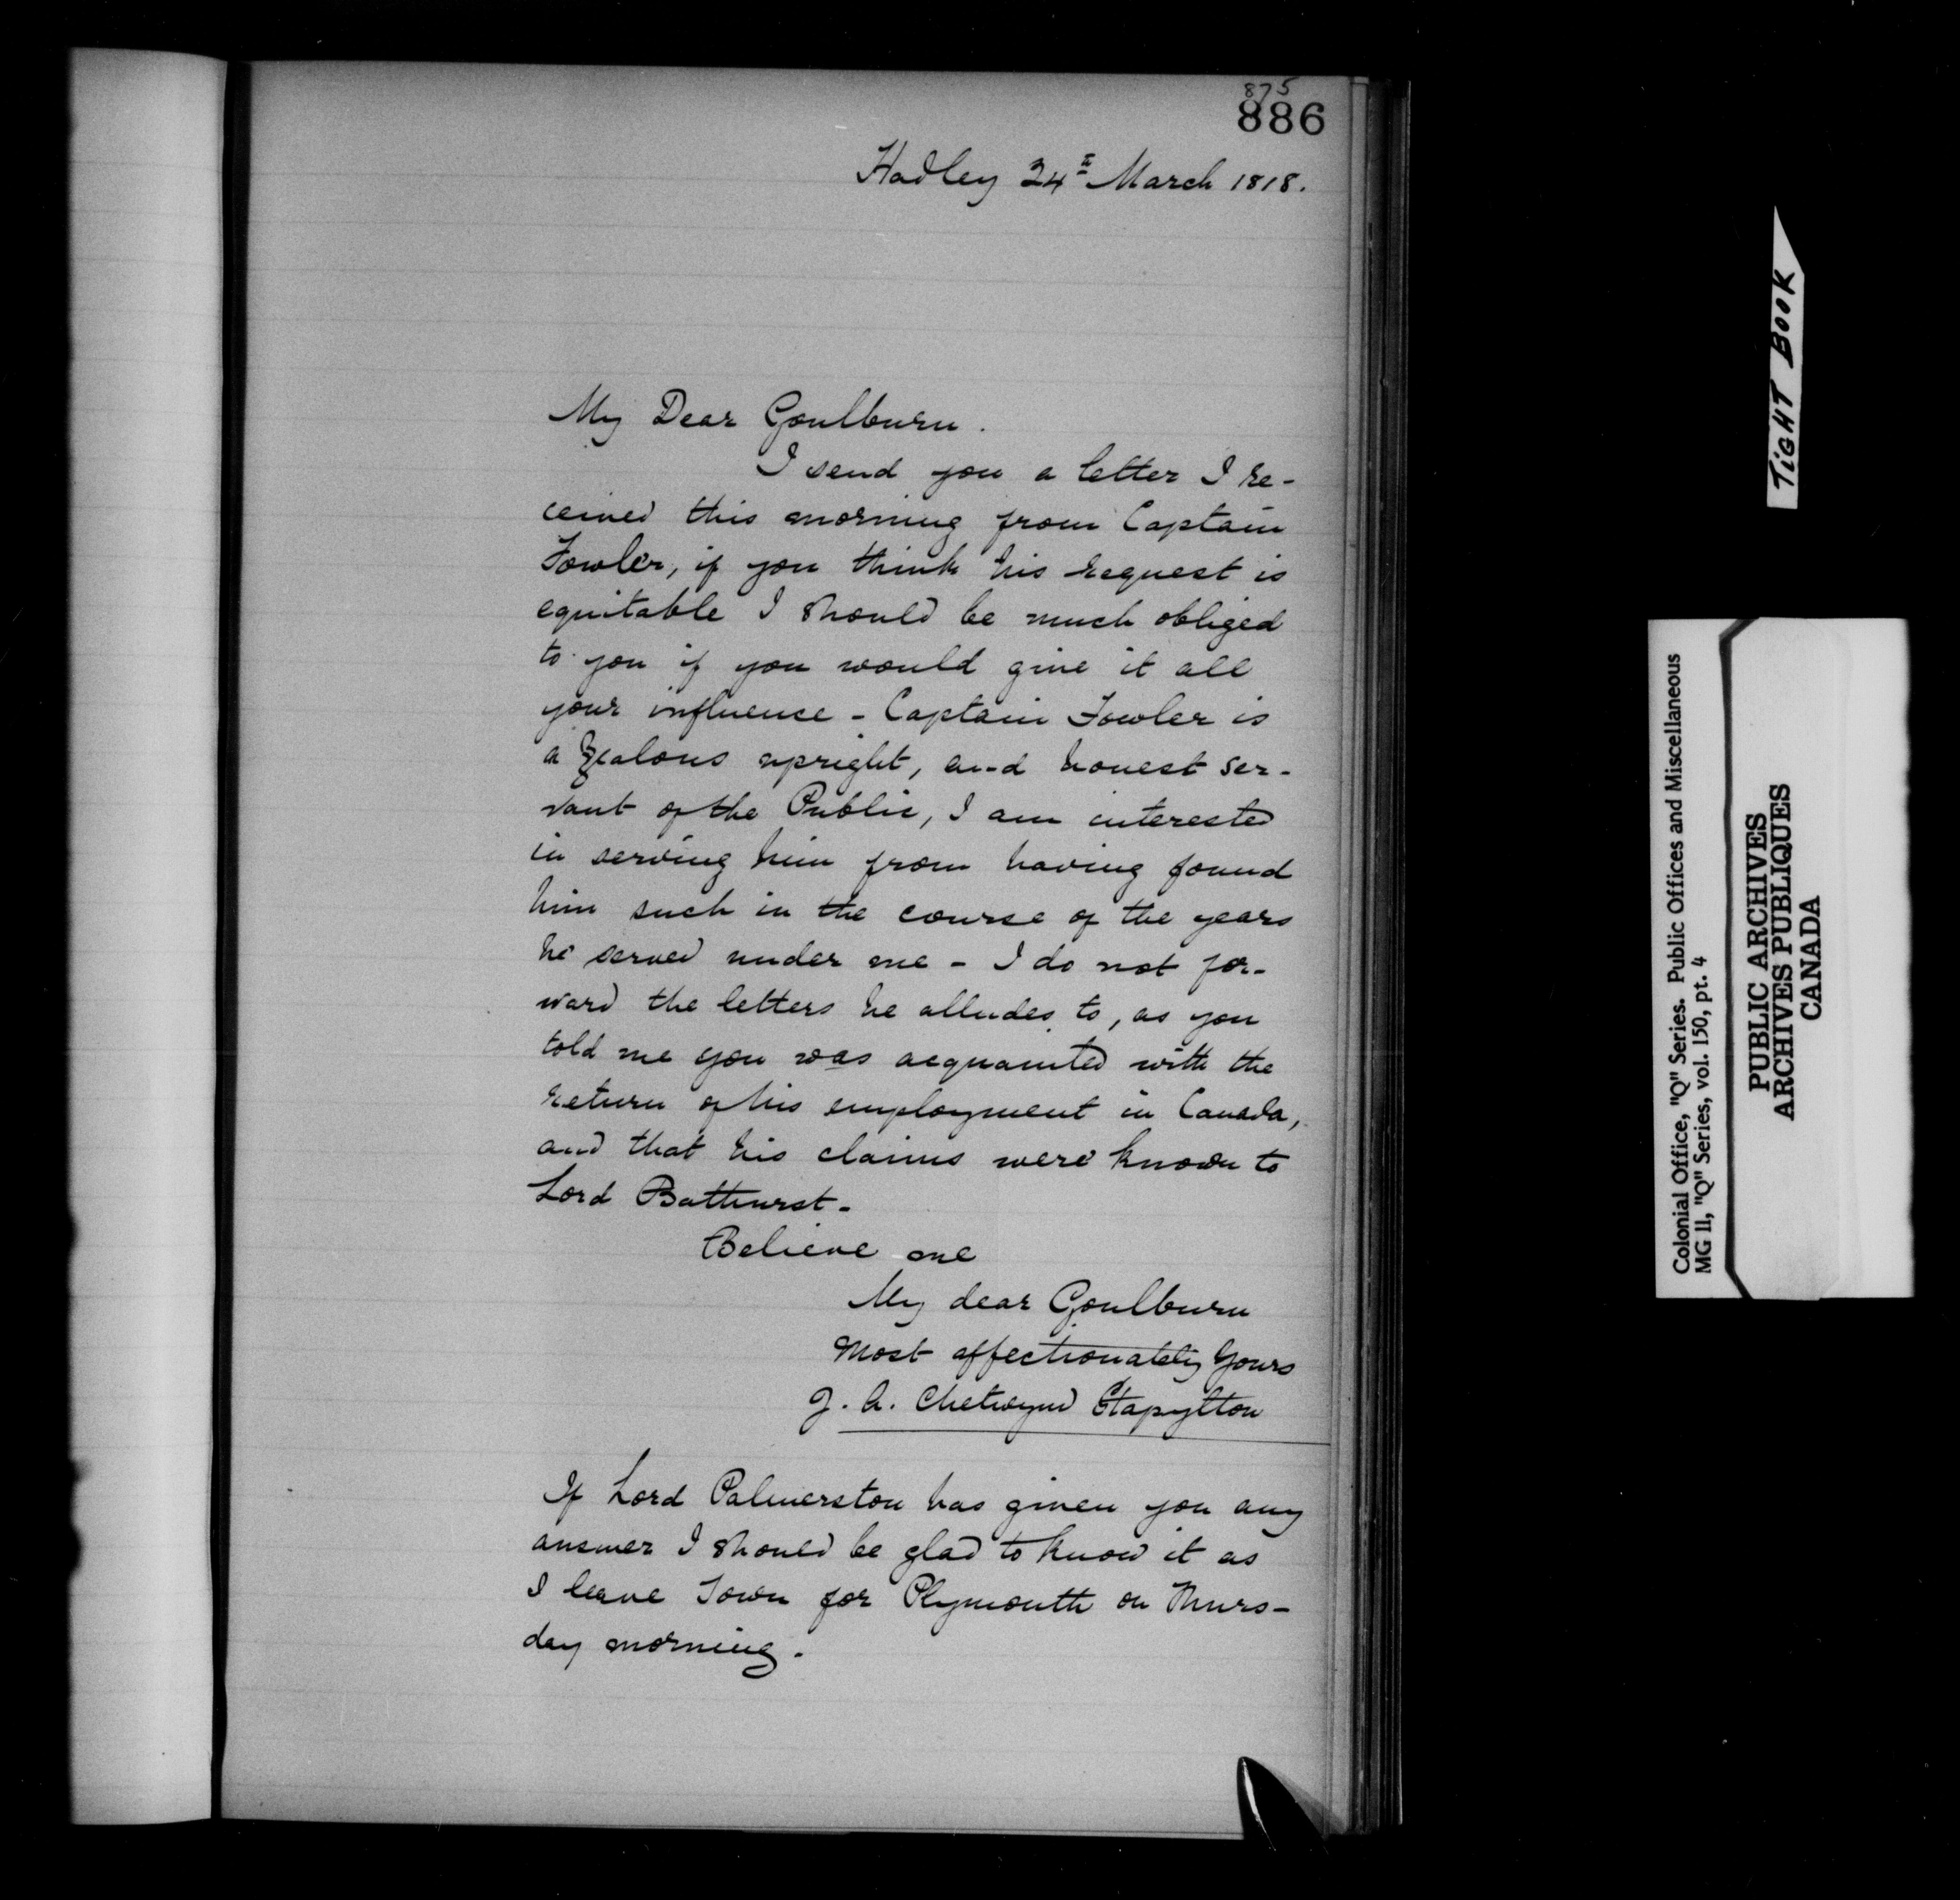 875
886
Hadley 24th March 1818.
My Dear Goulburn.
I send you a letter I re-
ceived this morning from Captain
Fowler, if you think his request is
equitable I should be much obliged
to you if you would give it all
your influence - Captain Fowler is
a zealous upright, and honest ser-
vant of the Public, I am interested
in serving him from having found
him such in the course of the years
he served under me - I do not for-
ward the letters he alludes to, as you
told me you was acquainted with the
return of his employment in Canada,
and that his claims were known to
Lord Bathurst -
Believe me
My dear Goulburn
Most affectionately Yours
G. A. Chetwynd Stapylton
If Lord Palmerston has given you any
answer I should be glad to know it as
I leave Town for Plymouth on Thurs-
day morning.
TIGHT BOOK
Colonial Office, "Q" Series. Public Offices and Miscellaneous
MG 11, "Q" Series, vol. 150, pt. 4
PUBLIC ARCHIVES
ARCHIVES PUBLIQUES
CANADA